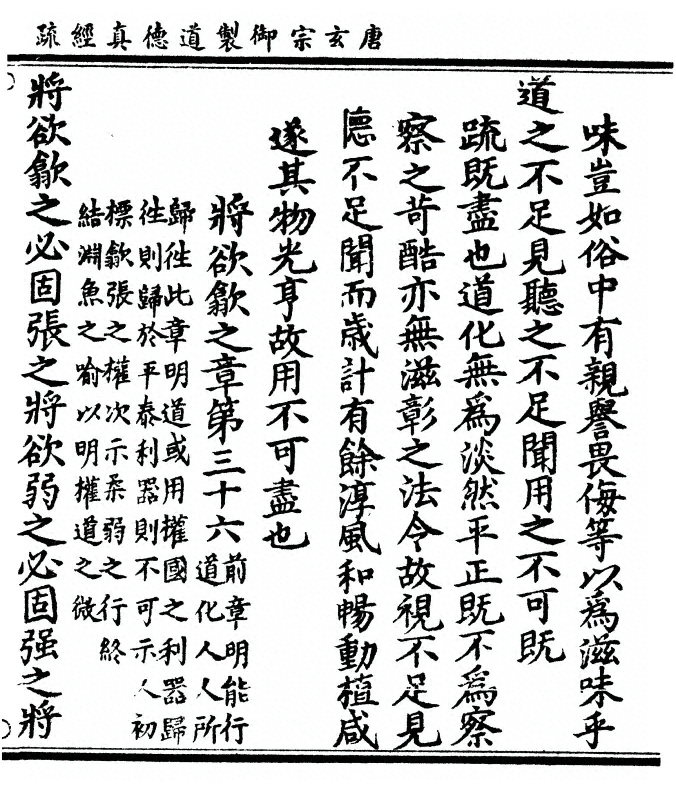 唐玄宗御製道德真經疏
味豈如俗中有親譽畏侮等以爲滋味乎
道之不足見聽之不足聞用之不可既
疏既盡也道化無爲淡然平正既不爲察
察之苛酷亦無滋彰之法令故視不足見
德不足聞而歲計有餘淳風和暢動植咸
遂其物光亨故用不可盡也
將欲歙之章第三十六
前章明能行
道化人人所
歸徃此章明道或用權國之利器歸
徃則歸於平泰利器則不可示人初
標歙張之權次示柔弱之行終
結淵魚之喻以明權道之微
將欲歙之必固張之將欲弱之必固强之將